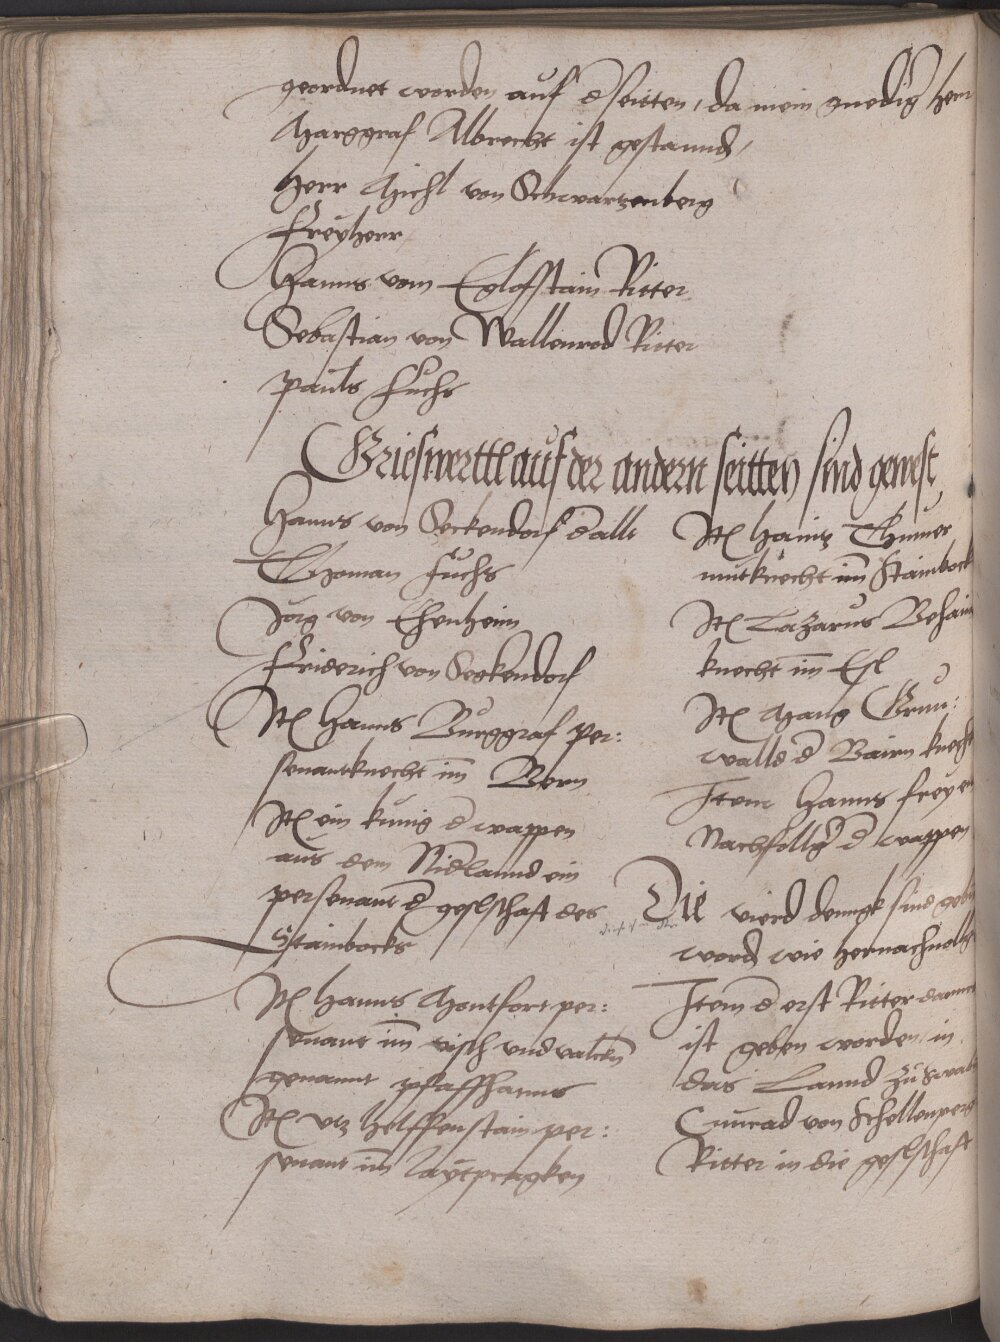 geordnet worden auf d seitten, da mein gnedig herr
Marggraf Albrecht ist gestannd,
Herr Michl von Schwartzenberg
Freyherr
Hanns vom Eglofstain Ritter
Sebastian von Wallenrod Ritter
Pauls Fuchs
Grieswerttl auf der andern seitten sind gewest
Hanns von Seckendorf d allt
Thoman Fuchs
Jorg von Ehenheim
Friderich von Seckendorf
Itm Hanns Burggraf per:
senantknecht im Bern
Itm ein kunig d wappen
aus dem Nidlannd ein
persenant d geslschaft des
Stainbocks
Itm Hanns Montfort per:
senant im visch und valckn
genannt pfaffhanns
Itm Utz Helffenstain per:
senant im laytpragken
Itm Haintz Thurner
mutknecht im Stainbock
Itm Lazarus Behaim
knecht im Esl
Itm Hang Grun:
walld d Bairn knecht
Item Hanns Frey ein
Nachfollger d wappen
Die vierd denngk sind geben
word wie hernachvolgt
Item d erst Ritter dannck
ist geben worden in
das Lannd zu Swabn
Cunrad von Schellenperg
Ritter in die geslschaft